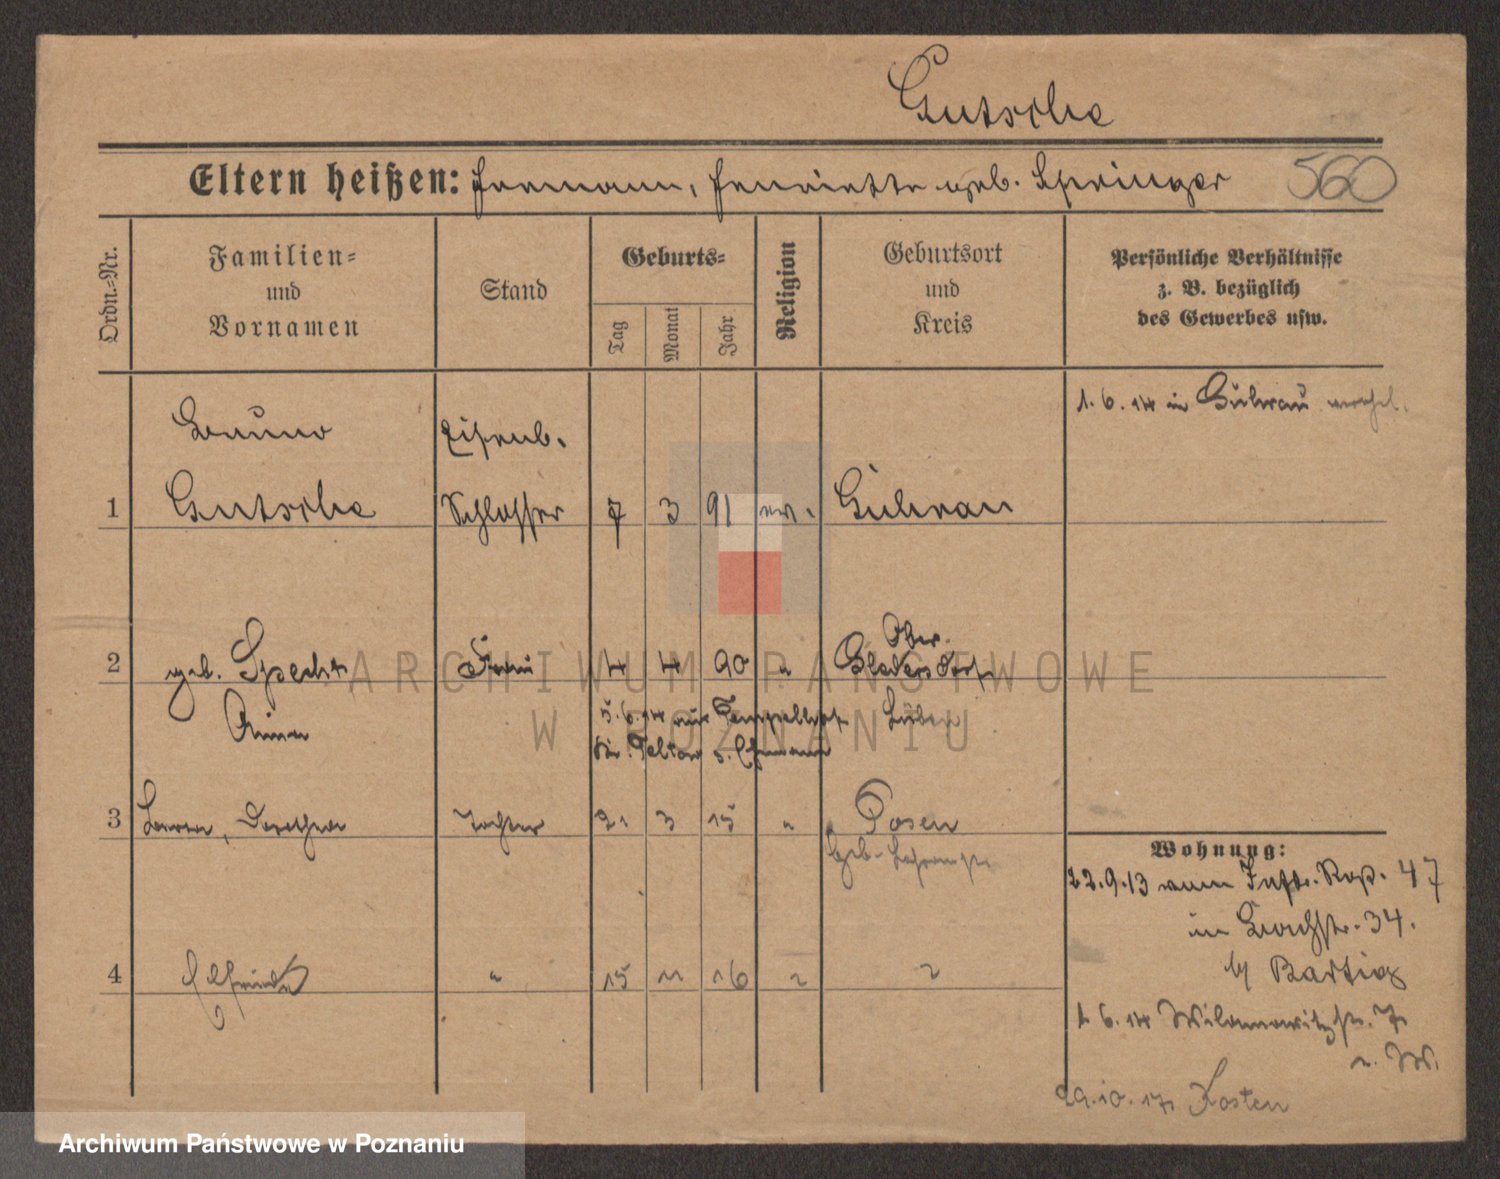 Gutsche
Eltern heißen: Hermann, Henriette geb. Springer 560
Ordn.-Nr.
Familien-
und
Vornamen
Stand
Geburts-
Tag
Monat
Jahr
Religion
Geburtsort
und
Kreis
Persönliche Verhältnisse
z. B. bezüglich
des Gewerbes usw.
1. 6. 14 in Guhrau verehel.
Bruno Eisenb.
1 Gutsche Schlosser 7 3 91 ev. Guhrau
Ober
2 geb. Specht Frau 4 4 90 " Gläsersdorf
Anna Lüben
5. 6. 14 aus Tempelhof
Kr. Teltow z. Ehemann
3 Dorothea Tochter 21 3 15 " Posen
Geb.
4 Elfriede " 15 11 16 "
Wohnung:
22. 9. 13 vom Inftr. Rgt. 47
in Bachstr. 34.
b/ Bartig
1. 6. 14 Wilamowitzstr. 7
29. 10. 17 Kosten
ARCHIWUM PAŃSTWOWE
W POZNANIU
Archiwum Państwowe w Poznaniu